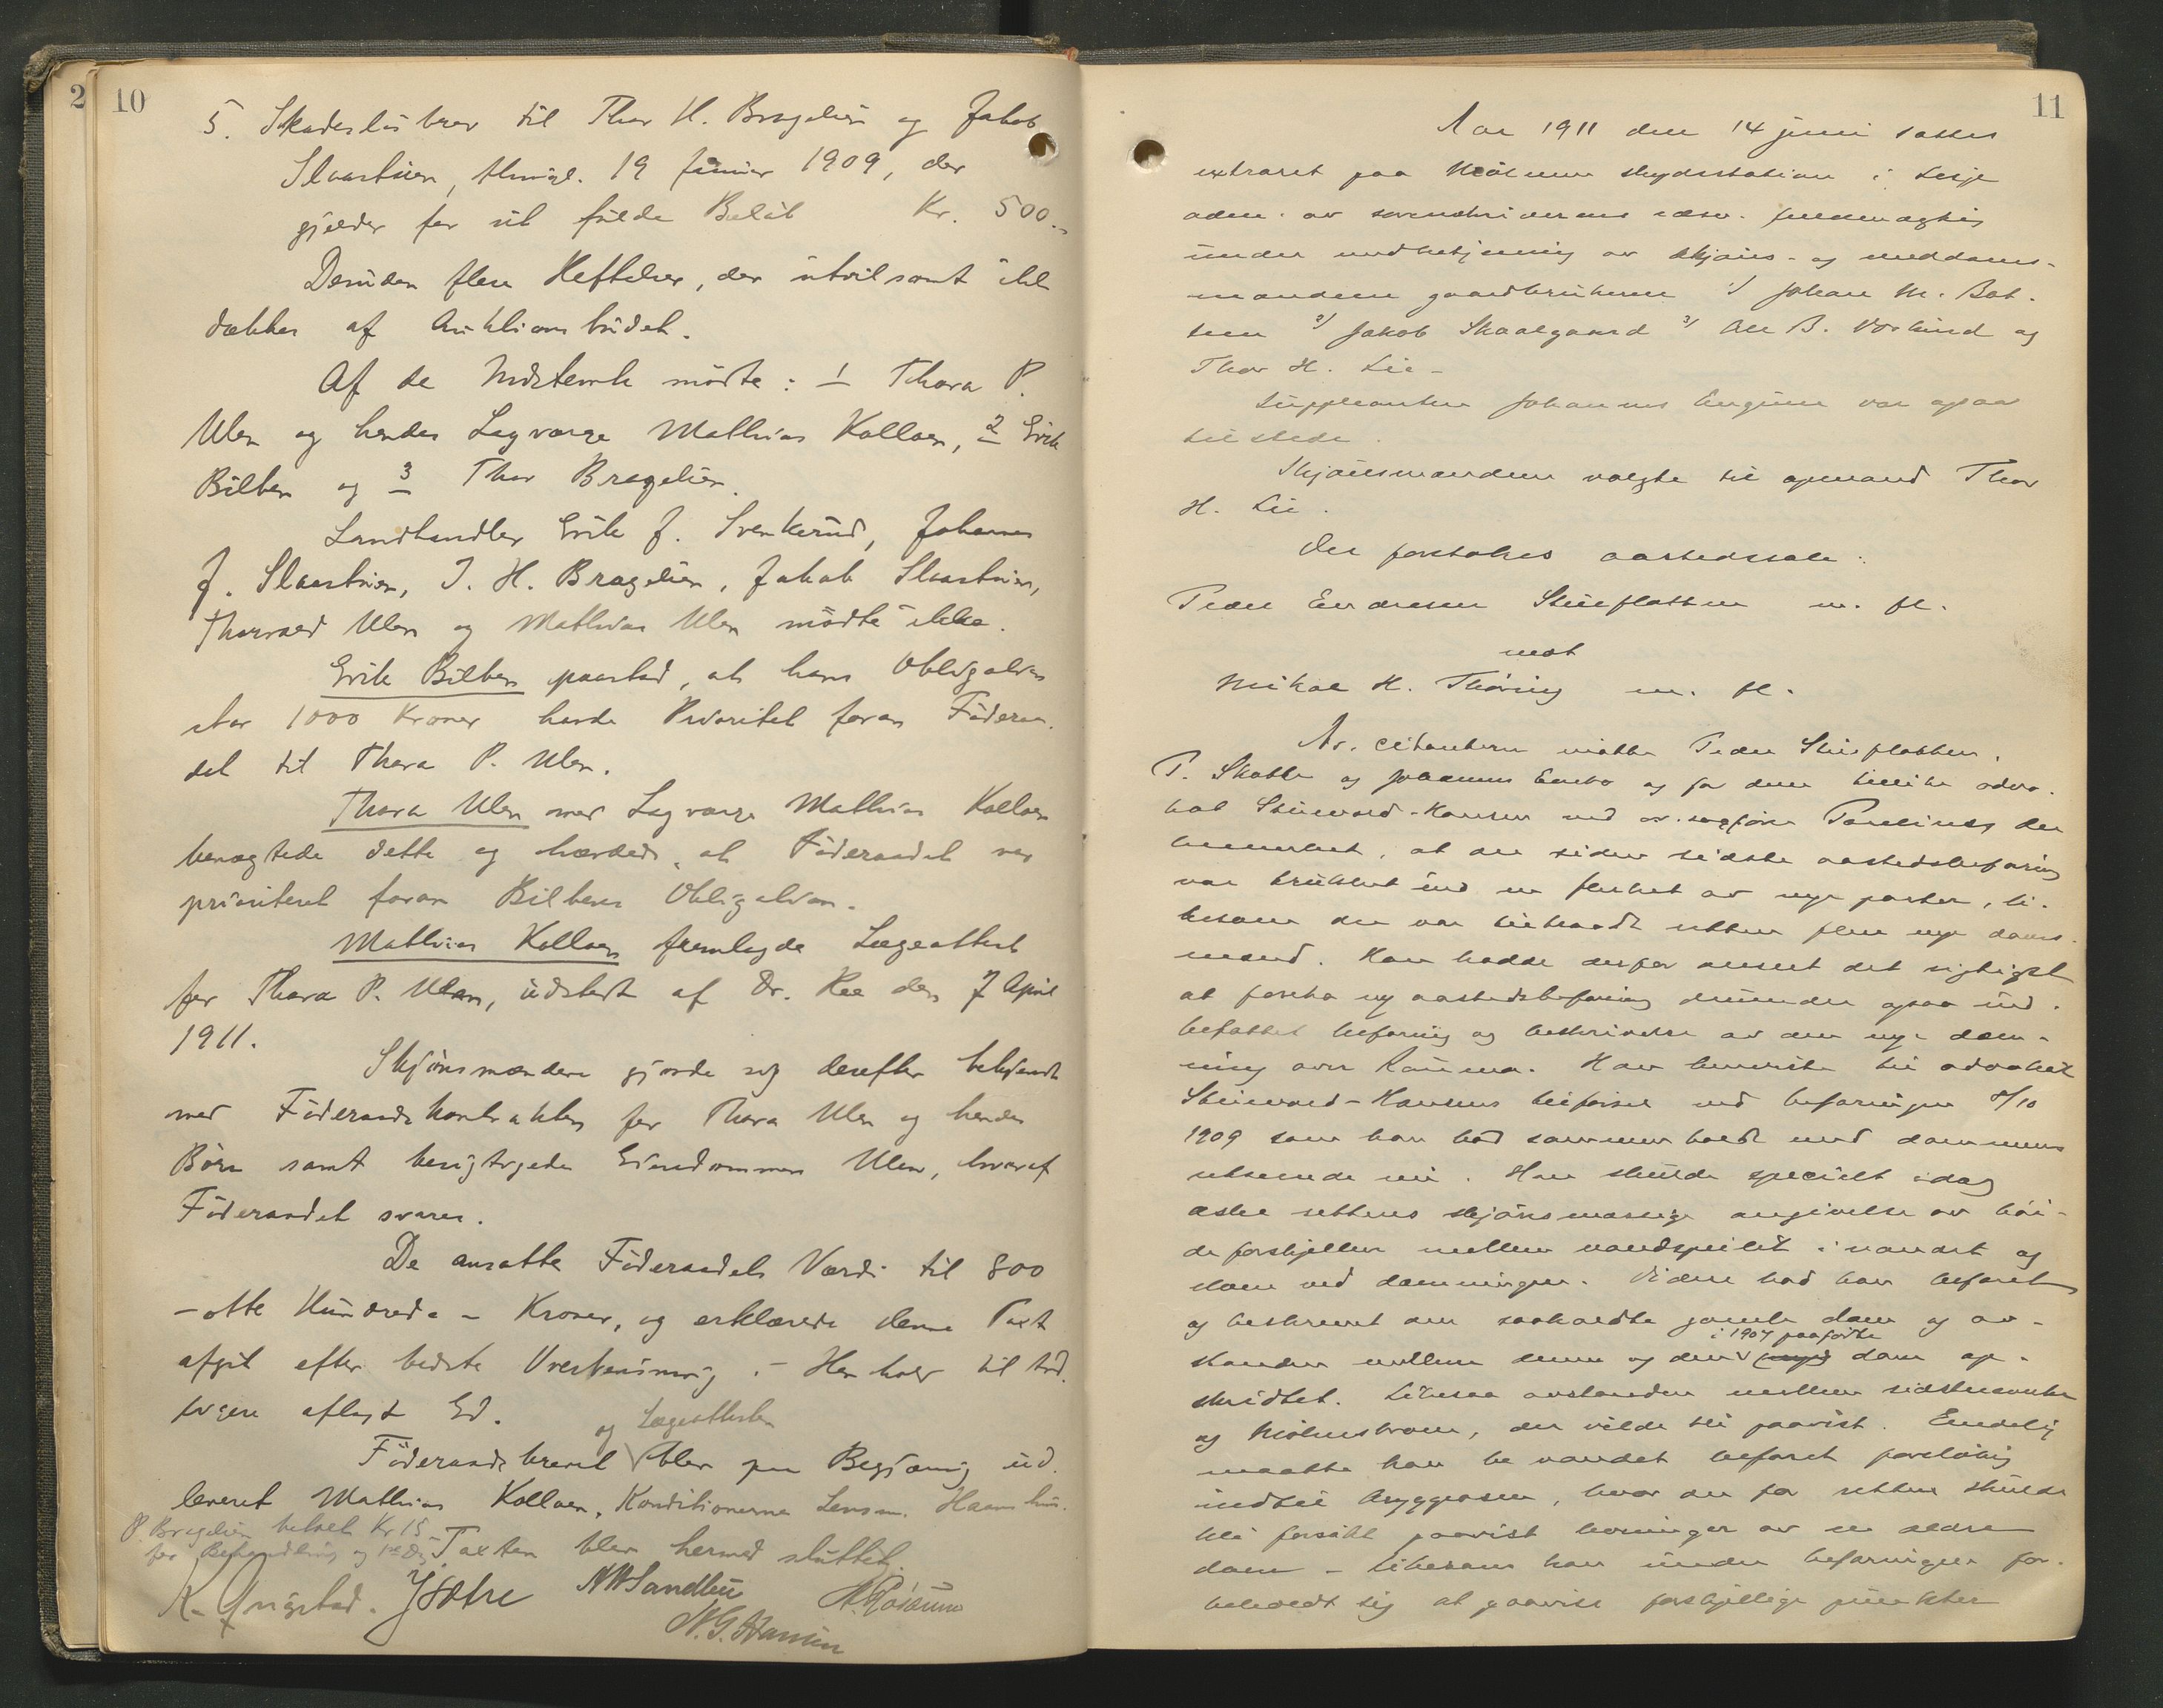 2
10
5. Skadesløsbrev til Thor H. Bragelien og Jakob
Slaastuen, thingl. 19 Januar 1909, der
gjælder for sit fulde Beløb Kr. 500.-
Desuden flere Heftelser, der utvilsomt ikke
dækkes af Auktionsbudet.
Af de Indstevnte mødte: 1 Thora P.
Ulen og hendes Lagværge Mathias Kolloen, 2 Erik
Bilben og 3 Thor Bragelien.
Landhandler Erik J. Svenkerud, Johannes
J. Slaastuen, T. H. Bragelien, Jakob Slaastuen,
Thorvald Ulen og Mathias Ulen mødte ikke.
Erik Bilben paastod, at hans Obligation
stor 1000 Kroner havde Prioritet foran Føderaa-
det til Thora P. Ulen.
Thora Ulen med Lagværge Mathias Kolloen
benægtede dette og hævdede, at Føderaadet var
prioriteret foran Bilbens Obligation.
Mathias Kolloen fremlagde Lægeattest
for Thora P. Ulen, udstedt af Dr. Ree den 7 April
1911.
Skjønsmændene gjorde sig derefter bekjendt
med Føderaadskontrakten for Thora Ulen og hendes
Børn samt besigtigede Eiendommen Ulen, hvoraf
Føderaadet svares.
De ansatte Føderaadets Værdi til 800
- otte Hundrede - Kroner, og erklærede denne Taxt
afgit efter bedste Overbevisning i Henhold til tid-
ligere aflagt Ed.
og Lægeattesten
Føderaadsbrevet blev paa Begjæring ud-
leveret Mathias Kolloen, Konditionerne Lensm. Haamshus.
P. Bragelien betalt Kr 15.-
for Behandling og
Taxten blev hermed sluttet.
K. Angstad. J Sætre N W Sandbu
N. G. Hansen
11
Aar 1911 den 14 juni sattes
extraret paa Mølmen skydsstation i Lesje
adm. av sorenskriverens edsv. fuldmægtig
under medbetjening av skjøns- og meddoms-
mændene gaardbrukerne 1/ Johan M. Bot-
ten 2/ Jakob Skaalgaard 3/ Ole B. Vorkind og
Thor H. Lie -
Suppleanten Johannes Enguen var ogsaa
tilstede.
Skjønsmændene valgte til opmand Thor
H. Lie.
Der foretokes aastedssak:
Peder Endresen Stueflotten m. fl.
mot
Mikal H. Thøring m. fl.
Av citanterne møtte Peder Stueflotten,
P. Skotte og Johannes Enebo og for dem tillike advo-
kat Steinvard-Hansen ved or. sagfører Paulinus der
bemerket, at der siden sidste aastedsbefaring
var trukket ind en flerhet av nye parter, li-
kesom der var tiltraadt retten flere nye doms-
mænd. Han hadde derfor anseet det rigtigst
at foreta ny aastedsbefaring derunder ogsaa ind-
befattet befaring og beskrivelse av den nye dæm-
ning over Rauma. Han henviste til advokat
Steinvard-Hansens tilførsel ved befaringen 8/10
1909 som han bad sammenholdt med dammens
utseende nu. Han skulde specielt idag
æske rettens skjønsmæssige angivelse av høi-
deforskjellen mellem vandspeilet i vandet og
elven ved dæmningen. Videre bad han befaret
og beskrevet den saakaldte gamle dam og av-
i 1907 paaførte
standen mellem denne og den (nye) dam op-
skridtet. Likesaa avstanden mellem sidstnævnte
og Mølmsbroen, der vilde bli paavist. Endelig
maatte han be vandet befaret foreløbig
indtil Bryggeosen, hvor der for retten skulde
bli forsøkt paavist levninger av en ældre
dam - Likesom han under befaringen for-
beholdt sig at paavise forskjellige punkter